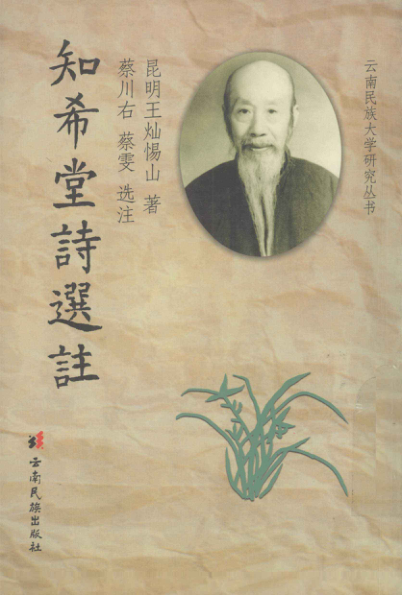 云南民族大学研究丛书
昆明王灿惕山 著
蔡川右 蔡雯 选注
知希堂詩選註
云南民族出版社